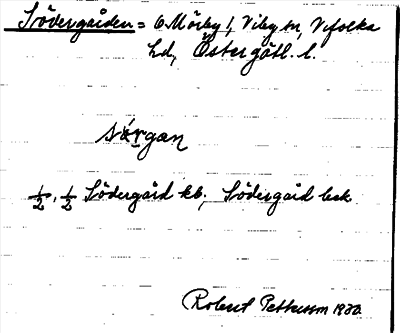 Södergården = 6 Mörby 1, Viby sn, Vifolka
hd, Östergötl. l.
sǿrgan
1/2, 1/2 Södergård kb, Södergård besk
Robert Pettersson 1930.